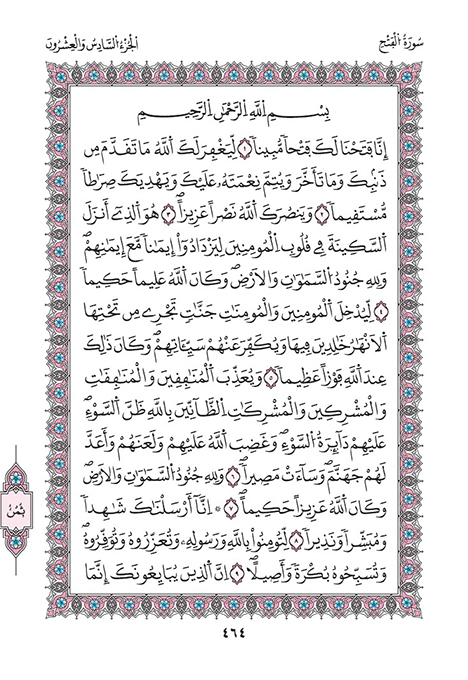 سُورَةُ اُ۬لْفَتْحِ
اَلْجُزْءُ اُ۬لسَّادِسُ وَالْعِشْرُونَ
بِسْمِ اِ۬للَّهِ اِ۬لرَّحْمَٰنِ اِ۬لرَّحِيمِ
إِنَّا فَتَحْنَا لَكَ فَتْحاٗ مُّبِيناٗ ١ لِّيَغْفِرَ لَكَ اَ۬للَّهُ مَا تَقَدَّمَ مِن
ذَنۢبِكَ وَمَا تَأَخَّرَ وَيُتِمَّ نِعْمَتَهُۥ عَلَيْكَ وَيَهْدِيَكَ صِرَٰطاٗ
مُّسْتَقِيماٗ ٢ وَيَنصُرَكَ اَ۬للَّهُ نَصْراً عَزِيزاً ٣ هُوَ اَ۬لذِےٓ أَنزَلَ
اَ۬لسَّكِينَةَ فِے قُلُوبِ اِ۬لْمُومِنِينَ لِيَزْدَادُوٓاْ إِيمَٰناٗ مَّعَ إِيمَٰنِهِمْۖ
وَلِلهِ جُنُودُ اُ۬لسَّمَٰوَٰتِ وَالَارْضِۖ وَكَانَ اَ۬للَّهُ عَلِيماً حَكِيماٗ
٤ لِّيُدْخِلَ اَ۬لْمُومِنِينَ وَالْمُومِنَٰتِ جَنَّٰتٖ تَجْرِے مِن تَحْتِهَا
اَ۬لَانْهَٰرُ خَٰلِدِينَ فِيهَا وَيُكَفِّرَ عَنْهُمْ سَيِّـَٔاتِهِمْۖ وَكَانَ ذَٰلِكَ
عِندَ اَ۬للَّهِ فَوْزاً عَظِيماٗ ٥ وَيُعَذِّبَ اَ۬لْمُنَٰفِقِينَ وَالْمُنَٰفِقَٰتِ
وَالْمُشْرِكِينَ وَالْمُشْرِكَٰتِ اِ۬لظَّآنِّينَ بِاللَّهِ ظَنَّ اَ۬لسَّوْءِۖ
عَلَيْهِمْ دَآئِرَةُ اُ۬لسَّوْءِۖ وَغَضِبَ اَ۬للَّهُ عَلَيْهِمْ وَلَعَنَهُمْ وَأَعَدَّ
لَهُمْ جَهَنَّمَۖ وَسَآءَتْ مَصِيراٗ ٦ وَلِلهِ جُنُودُ اُ۬لسَّمَٰوَٰتِ وَالَارْضِۖ
وَكَانَ اَ۬للَّهُ عَزِيزاً حَكِيماً ٧ ۞ اِنَّآ أَرْسَلْنَٰكَ شَٰهِداٗ
وَمُبَشِّراٗ وَنَذِيراٗ ٨ لِّتُومِنُواْ بِاللَّهِ وَرَسُولِهِۦ وَتُعَزِّرُوهُ وَتُوَقِّرُوهُۖ
وَتُسَبِّحُوهُ بُكْرَةٗ وَأَصِيلاًۖ ٩ اِنَّ اَ۬لذِينَ يُبَايِعُونَكَ إِنَّمَا
ثُمُنُ
٤٦٤